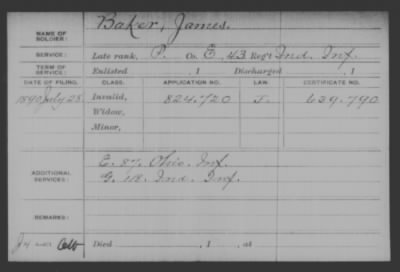 NAME OF SOLDIER: Baker, James.
SERVICE: Late rank, P. Co. E, 43 Reg't Ind. Inf.
TERM OF SERVICE: Enlisted , 1 Discharged , 1
DATE OF FILING. CLASS. APPLICATION NO. LAW. CERTIFICATE NO.
1890 July 28. Invalid, 824.720 J. 639.790
Widow,
Minor,
ADDITIONAL SERVICES: E. 87. Ohio. Inf.
G. Ind. Inf.
REMARKS:
Died , 1 , at